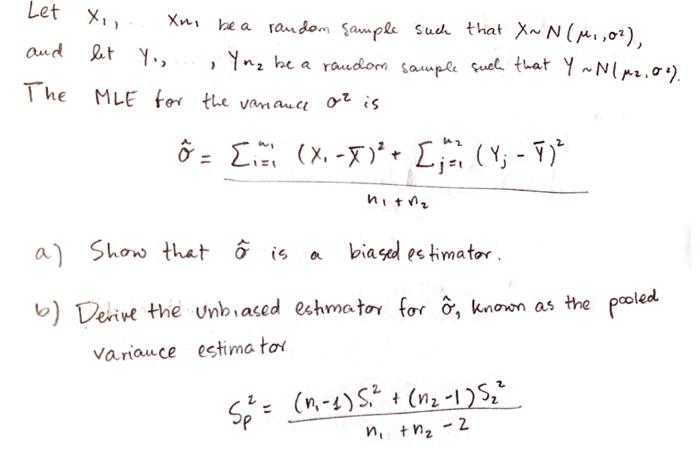 Let X₁, .. Xn₁ be a random sample such that X~N(μ₁,σ²),
and let Y₁, .. , Yn₂ be a random sample such that Y~N(μ₂,σ²).
The MLE for the variance σ² is
σ̂ = Σᵢ₌₁ⁿ¹ (Xᵢ - X̄)² + Σⱼ₌₁ⁿ² (Yⱼ - Ȳ)²
n₁ + n₂
a) Show that σ̂ is a biased estimator.
b) Derive the unbiased estimator for σ̂, known as the pooled
variance estimator
Sp² = (n₁-1)S₁² + (n₂-1)S₂²
n₁ + n₂ - 2